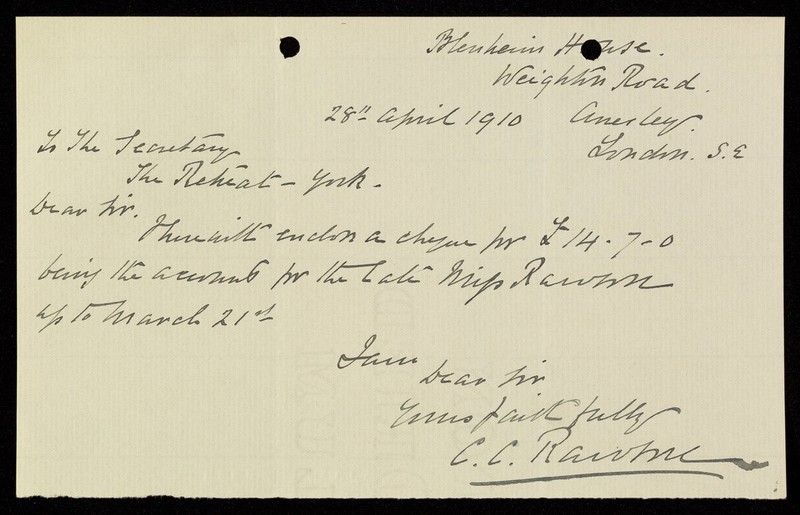 Blenheim House.
Weighton Road.
28th April 1910 Anerley.
London. S.E
To The Secretary
The Retreat - York.
Dear Sir.
I herewith enclose a cheque for £14-7-0
being the account for the late Miss Rawson
up to March 21st
I am
Dear Sir
Yours faithfully
C. C. Rawson